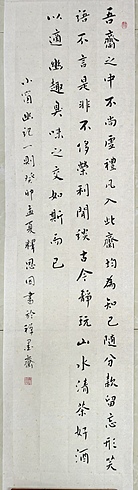 吾齋之中不尚虛禮凡入此齋均為知己隨分款留忘形笑
語不言是非不侈榮利閒談古今靜玩山水清茶好酒
以適幽趣臭味之交如斯而已
小窗幽記一則癸卯孟夏釋恩因書於禪墨齋